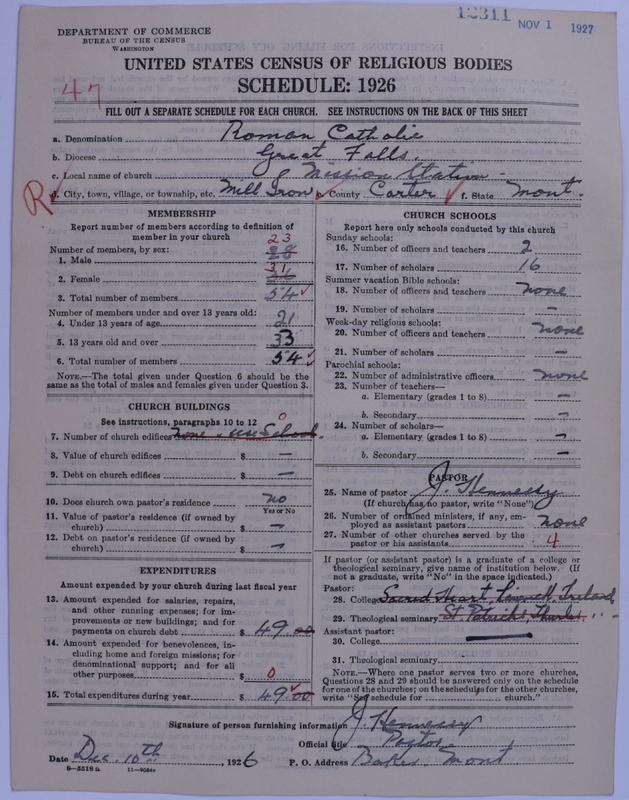 12311
NOV 1 1927
DEPARTMENT OF COMMERCE
BUREAU OF THE CENSUS
WASHINGTON
UNITED STATES CENSUS OF RELIGIOUS BODIES
SCHEDULE: 1926
47
FILL OUT A SEPARATE SCHEDULE FOR EACH CHURCH. SEE INSTRUCTIONS ON THE BACK OF THIS SHEET
a. Denomination Roman Catholic
b. Diocese Great Falls.
c. Local name of church Mission Station
R
d. City, town, village, or township, etc. Mill Iron e. County Carter f. State Mont.
MEMBERSHIP
Report number of members according to definition of
member in your church
Number of members, by sex:
23
1. Male 28
31
2. Female
3. Total number of members 54
Number of members under and over 13 years old:
4. Under 13 years of age 21
5. 13 years old and over 33
6. Total number of members 54
NOTE.—The total given under Question 6 should be
same as the total of males and females given under Question 3.
CHURCH BUILDINGS
See instructions, paragraphs 10 to 12
0
7. Number of church edifices None - use School.
8. Value of church edifices $ —
9. Debt on church edifices $ —
10. Does church own pastor's residence no
Yes or No
11. Value of pastor's residence (if owned by
church) $ —
12. Debt on pastor's residence (if owned by
church) $ —
EXPENDITURES
Amount expended by your church during last fiscal year
13. Amount expended for salaries, repairs,
and other running expenses; for im-
provements or new buildings; and for
payments on church debt $ 49.00
14. Amount expended for benevolences, in-
cluding home and foreign missions; for
denominational support; and for all
other purposes $ 0
15. Total expenditures during year $ 49.00
CHURCH SCHOOLS
Report here only schools conducted by this church
Sunday schools:
16. Number of officers and teachers 2
17. Number of scholars 16
Summer vacation Bible schools:
18. Number of officers and teachers none
19. Number of scholars —
Week-day religious schools:
20. Number of officers and teachers none
21. Number of scholars —
Parochial schools:
22. Number of administrative officers none
23. Number of teachers—
a. Elementary (grades 1 to 8) —
b. Secondary —
24. Number of scholars—
a. Elementary (grades 1 to 8) —
b. Secondary —
PASTOR
25. Name of pastor J. Hennessy
(If church has no pastor, write "None")
26. Number of ordained ministers, if any, em-
ployed as assistant pastors none
27. Number of other churches served by the
pastor or his assistants 4
If pastor (or assistant pastor) is a graduate of a college or
theological seminary, give name of institution below. (If
not a graduate, write "No" in the space indicated.)
Pastor:
28. College Sacred Heart, Limerick Ireland
29. Theological seminary St. Patrick's, Thurles, . . —
Assistant pastor:
30. College
31. Theological seminary
NOTE.—Where one pastor serves two or more churches,
Questions 28 and 29 should be answered only on the schedule
for one of the churches; on the schedules for the other churches,
write "See schedule for church."
Signature of person furnishing information J. Hennessy
Official title Pastor
Date Dec. 10th, 1926 P. O. Address Baker Mont
8—5518a 11—9054a